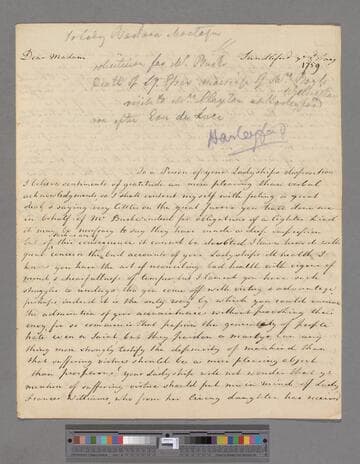 To Lady Barbara Montagu
Dear Madam
Sandleford ye
1759
solicitation for Mr Burke
Death of
visit to Mrs Clayton at Harleyford
me after Eau de Luce
Harleyford
To a Person of your Ladyships disposition
I believe sentiments of gratitude are more pleasing than verbal
acknowledgments so I shall content myself with feeling a great
deal & saying very little on the great favor you have done me
in behalf of Mr Burke indeed for obligations of a lighter kind
it may be necessary to say they have made a deep impression
but of this consequence it cannot be doubted. I have heard with
great concern the bad accounts of your Ladyships ill health, I
know you have the art of reconciling bad health with vigour of
mind & chearfullness of temper but I lament you have such
struggles to undergo tho you come off with victory & advantage
perhaps indeed it is the only way by which you could receive
the admiration of your acquaintance without provoking their
envy, for so common is that passion the generality of people
hate even a Saint but they pardon a martyr, can any
thing more strongly testify the deformity of mankind than
that suffering virtue should be a more pleasing object
than prosperous. Your Ladyship will not wonder that ye
mention of suffering virtue should put me in mind of Lady
Frances Williams, who from her loving daughter has received